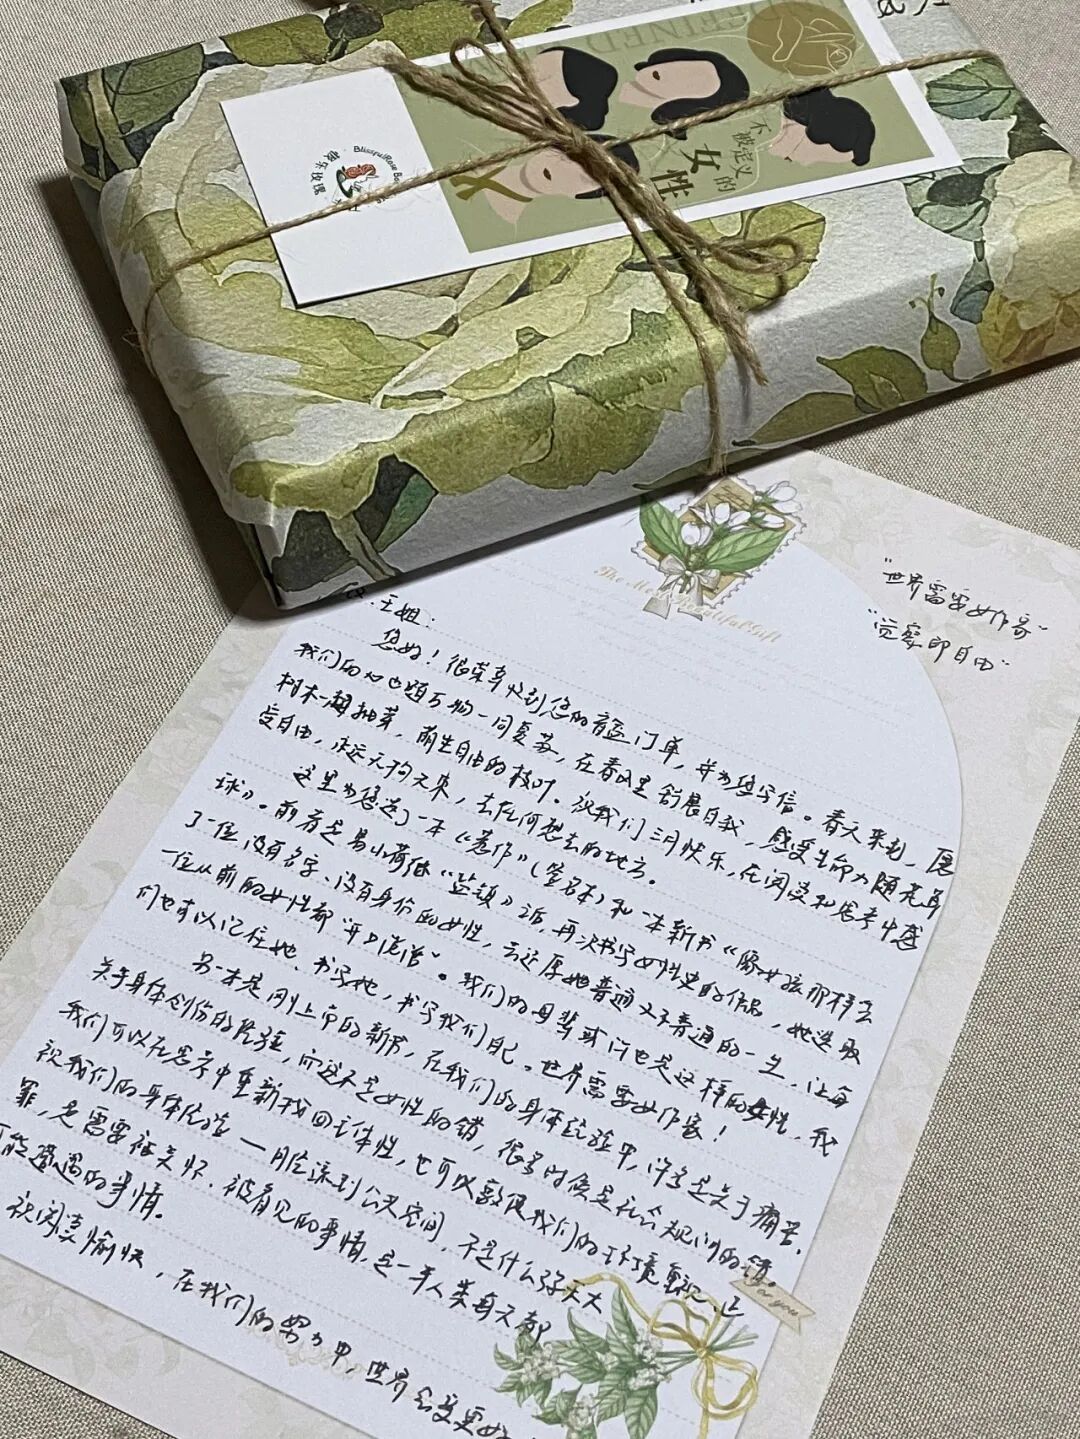 不被定义的
女性
王姐：
您好！很荣幸收到您的盲盒订单，并为您写信。春天来到，愿
我们的心也随万物一同复苏，在春风里舒展自我，感受生命力随花草
树木一起抽芽，萌生自由的枝叶。祝我们三月快乐，在阅读和思考中感
受自由，永远，去任何想去的地方。
这里为您选了一本《惹作》（签名本）和一本新书《像女孩那样丢
球》。前者是易小荷继《盐镇》后，再次书写女性史的作品，她选取
了一位没有名字、没有身份的女性，去还原她普通又不普通的一生，让每
一位从前的女性都“开口说话”。我们的母辈或许也是这样的女性，我
们也可以记住她、书写她，书写我们自己。世界需要女作家！
另一本是刚上市的新书，在我们的身体经验中，许多是关于痛苦、
关于身体创伤的经验，而这不是女性的错，很多时候是社会规训的错。
我们可以在思考中重新找回主体性，也可以敦促我们的环境重视、正
视我们的身体体验——月经来到公共空间，不是什么弥天大
罪，是需要被关怀、被看见的事情，这一半人类每天都
可能遭遇的事情。
祝阅读愉快，在我们的努力中，世界会变更好
“世界需要女作家”
“觉察即自由”
The Most Beautiful Gift
For you